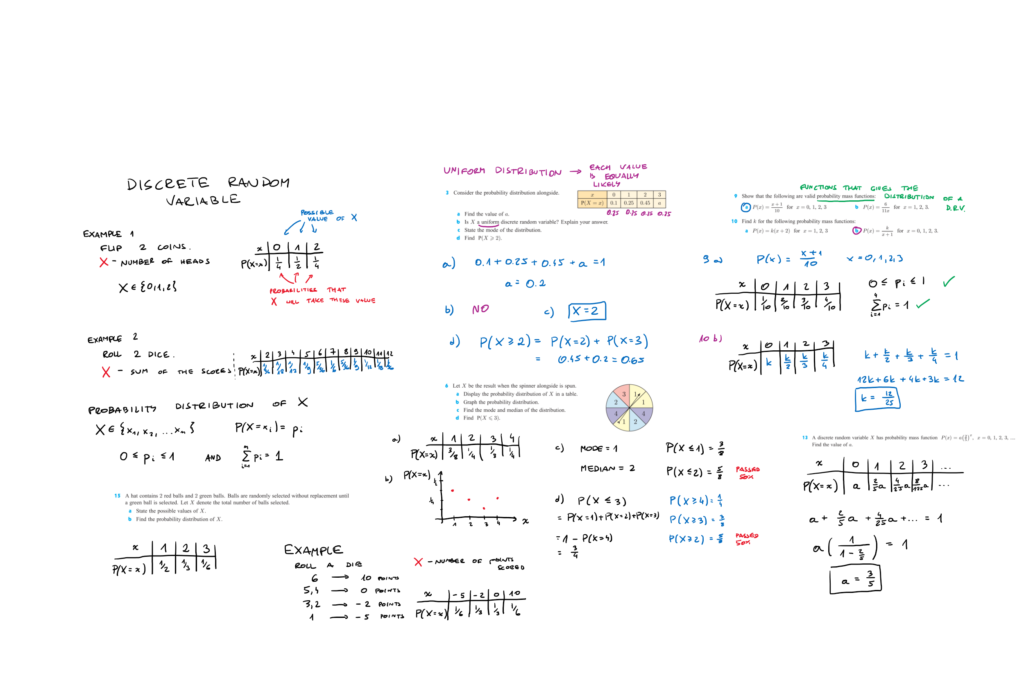 DISCRETE RANDOM
VARIABLE
EXAMPLE 1
FLIP 2 COINS.
X - NUMBER OF HEADS
X ∈ {0,1,2}
POSSIBLE
VALUE OF X
x | 0 | 1 | 2
P(X=x) | 1/4 | 1/2 | 1/4
PROBABILITIES THAT
X WILL TAKE THESE VALUE
EXAMPLE 2
ROLL 2 DICE.
X - SUM OF THE SCORES
x | 2 | 3 | 4 | 5 | 6 | 7 | 8 | 9 | 10 | 11 | 12
P(X=x)
PROBABILITY DISTRIBUTION OF X
X ∈ {x₁, x₂, ... xₙ} P(X=xᵢ) = pᵢ
0 ≤ pᵢ ≤ 1 AND Σ pᵢ = 1
13 A hat contains 2 red balls and 2 green balls. Balls are randomly selected without replacement until
a green ball is selected. Let X denote the total number of balls selected.
a State the possible values of X.
b Find the probability distribution of X.
x | 1 | 2 | 3
P(X=x) | 1/2 | 1/3 | 1/6
EXAMPLE
ROLL A DIE
6 → 10 POINTS
5,4 → 0 POINTS
3,2 → -2 POINTS
1 → -5 POINTS
X - NUMBER OF POINTS
SCORED
x | -5 | -2 | 0 | 10
P(X=x) | 1/6 | 1/3 | 1/3 | 1/6
UNIFORM DISTRIBUTION → EACH VALUE
IS EQUALLY
LIKELY
2 Consider the probability distribution alongside.
x 0 1 2 3
P(X = x) 0.1 0.25 0.45 a
0.25 0.25 0.25 0.25
a Find the value of a.
b Is X a uniform discrete random variable? Explain your answer.
c State the mode of the distribution.
d Find P(X ⩾ 2).
a) 0.1 + 0.25 + 0.45 + a = 1
a = 0.2
b) NO c) X = 2
d) P(X ≥ 2) = P(X=2) + P(X=3)
= 0.45 + 0.2 = 0.65
6 Let X be the result when the spinner alongside is spun.
a Display the probability distribution of X in a table.
b Graph the probability distribution.
c Find the mode and median of the distribution.
d Find P(X ⩽ 3).
3 1
2 1
4 4
1 2
a) x | 1 | 2 | 3 | 4
P(X=x) | 3/8 | 1/4 | 1/8 | 1/4
b) P(X=x)
1 2 3 4 x
c) MODE = 1
MEDIAN = 2
P(X ≤ 1) = 3/8
P(X ≤ 2) = 5/8 PASSED
50%
d) P(X ≤ 3)
= P(X=1) + P(X=2) + P(X=3)
= 1 - P(X=4)
= 3/4
P(X ≥ 4) = 1/4
P(X ≥ 3) = 3/8
P(X ≥ 2) = 5/8 PASSED
50%
FUNCTIONS THAT GIVES THE
DISTRIBUTION OF A
D.R.V.
9 Show that the following are valid probability mass functions:
a P(x) = (x+1)/10 for x = 0, 1, 2, 3 b P(x) = 6/11x for x = 1, 2, 3.
10 Find k for the following probability mass functions:
a P(x) = k(x + 2) for x = 1, 2, 3 b P(x) = k/(x+1) for x = 0, 1, 2, 3.
9 a) P(x) = (x+1)/10 x = 0,1,2,3
x | 0 | 1 | 2 | 3
P(X=x) | 1/10 | 2/10 | 3/10 | 4/10
0 ≤ pᵢ ≤ 1 ✓
Σ pᵢ = 1 ✓
10 b)
x | 0 | 1 | 2 | 3
P(X=x) | k | k/2 | k/3 | k/4
k + k/2 + k/3 + k/4 = 1
12k + 6k + 4k + 3k = 12
k = 12/25
11 A discrete random variable X has probability mass function P(x) = a(2/5)ˣ, x = 0, 1, 2, 3, ...
Find the value of a.
x | 0 | 1 | 2 | 3 | ...
P(X=x) | a | 2/5 a | 4/25 a | 8/125 a | ...
a + 2/5 a + 4/25 a + ... = 1
a(1/(1 - 2/5)) = 1
a = 3/5